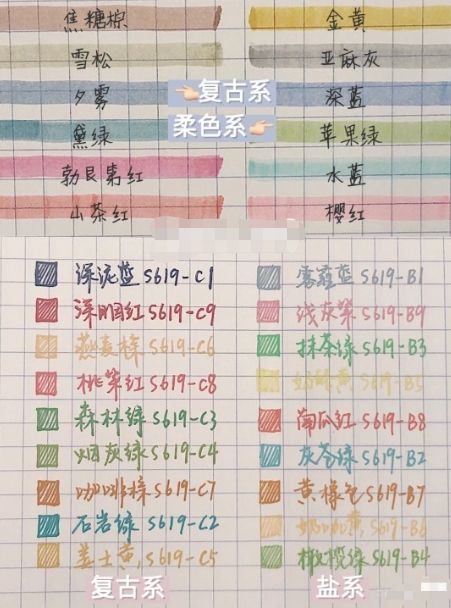 焦糖棕 金黄
雪松 亚麻灰
夕雾 👈🏻复古系 深蓝
黛绿 柔色系👉🏻 苹果绿
勃艮第红 水蓝
山茶红 樱红
深泥蓝 S619-C1 雾霾蓝 S619-B1
深胭红 S619-C9 浅灰紫 S619-B9
燕麦棕 S619-C6 抹茶绿 S619-B3
桃紫红 S619-C8 奶酪黄 S619-B5
森林绿 S619-C3 南瓜红 S619-B8
烟灰绿 S619-C4 灰苍绿 S619-B2
咖啡棕 S619-C7 黄橡色 S619-B7
石岩绿 S619-C2 奶咖黄 S619-B6
姜土黄 S619-C5 橄榄绿 S619-B4
复古系 盐系